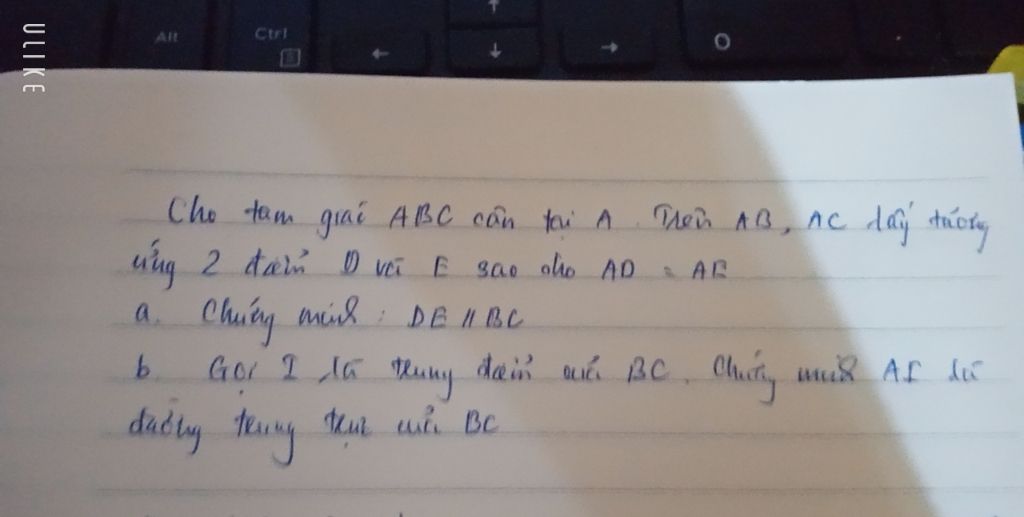 ULIKE
Alt
Ctrl
Cho tam giác ABC cân tại A. Trên AB, AC lấy tương
ứng 2 điểm D và E sao cho AD = AE
a. Chứng minh : DE // BC
b. Gọi I là trung điểm của BC. Chứng minh AI là
đường trung trực của BC